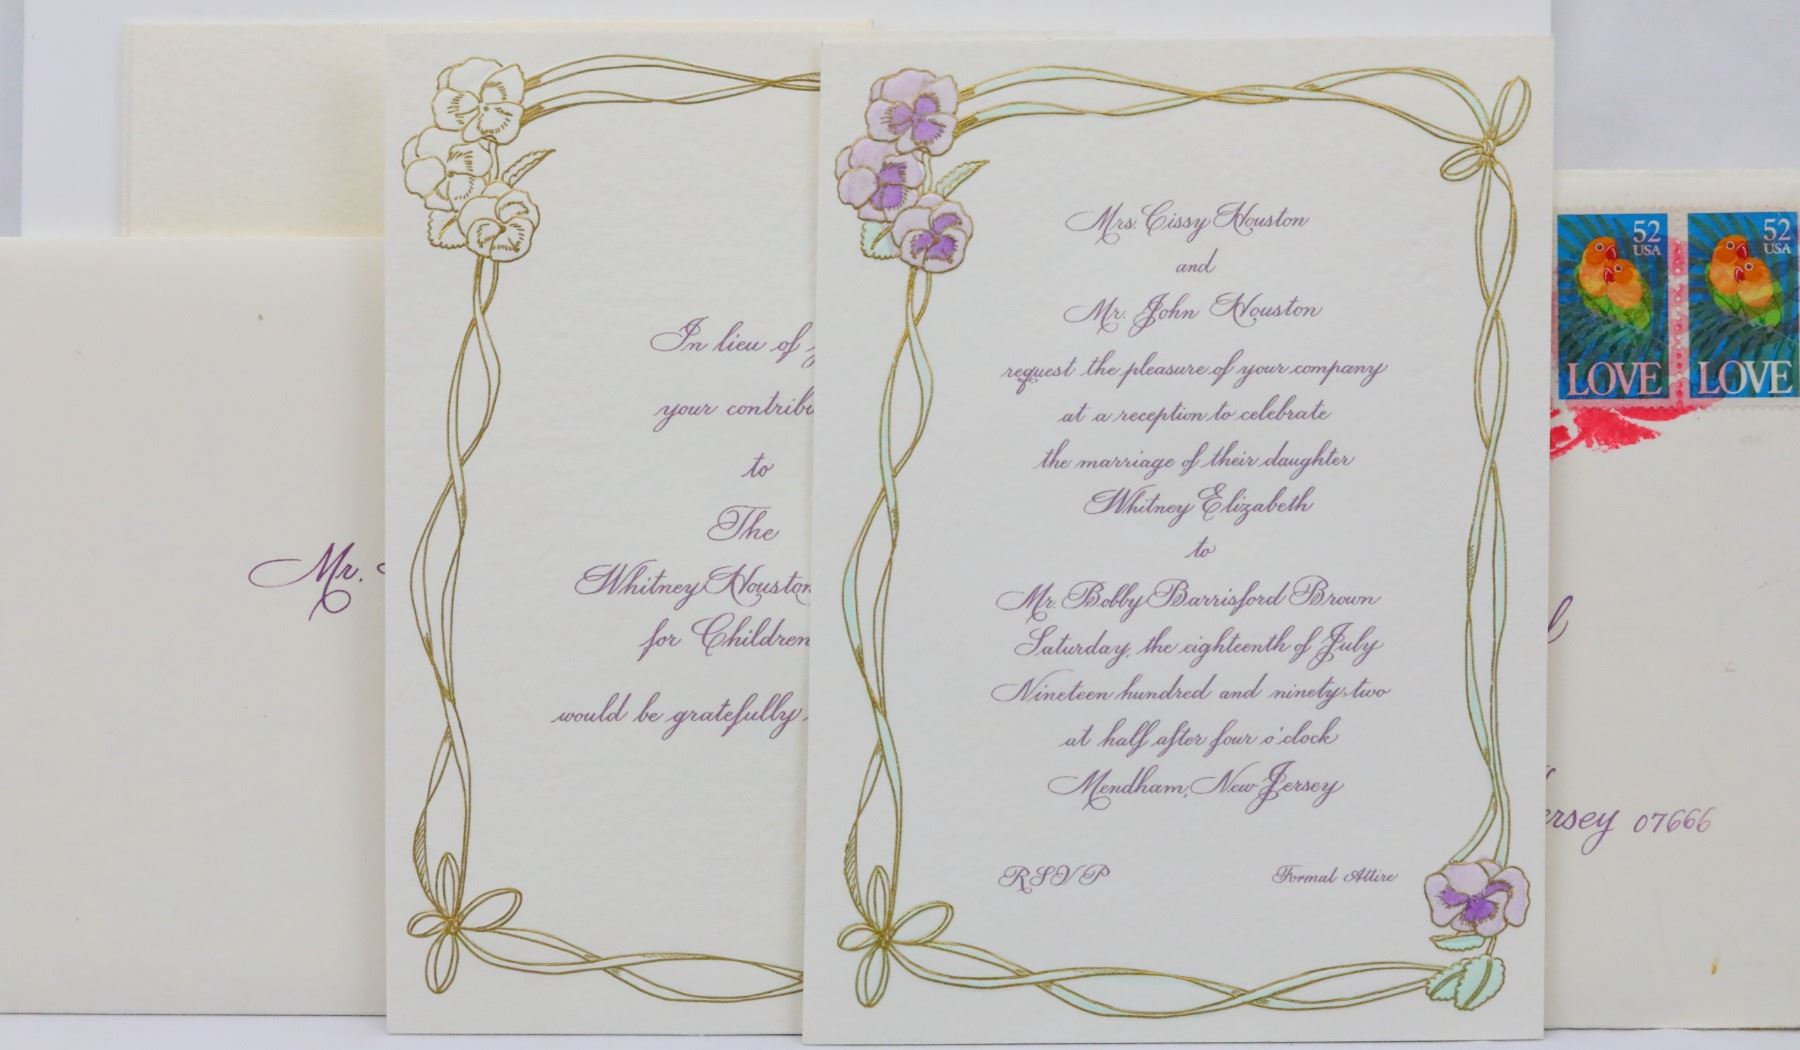 Mr.
In lieu of
your contribu
to
The
Whitney Houston
for Children
would be gratefully
Mrs. Cissy Houston
and
Mr. John Houston
request the pleasure of your company
at a reception to celebrate
the marriage of their daughter
Whitney Elizabeth
to
Mr. Bobby Barrisford Brown
Saturday, the eighteenth of July
Nineteen hundred and ninety-two
at half after four o'clock
Mendham, New Jersey
RSVP Formal Attire
52
USA
LOVE
52
USA
LOVE
l
ersey 07666